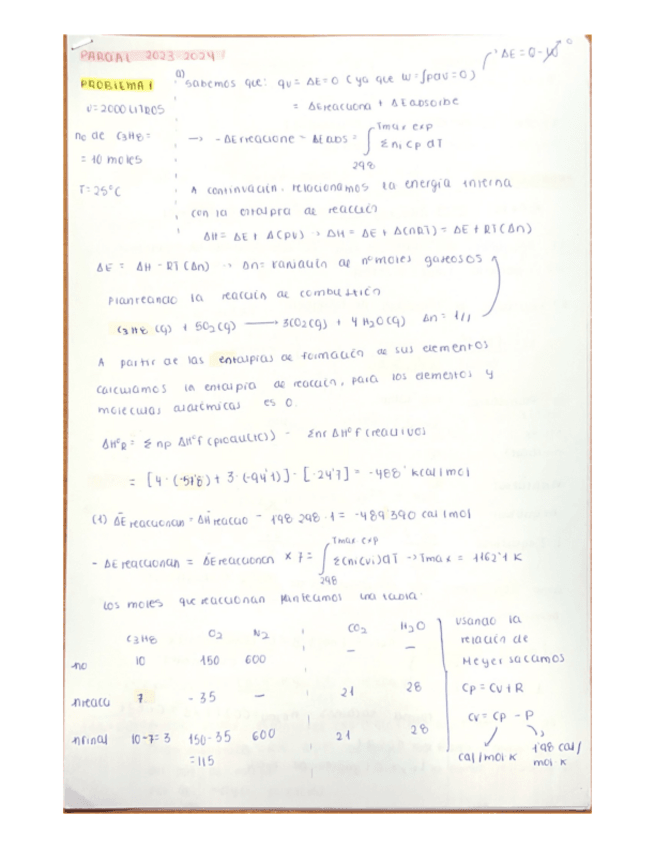 PARCIAL 2023-2024
PROBLEMA 1
V=2000 LITROS
no de C3H8 =
= 10 moles
T=25°C
a) Sabemos que: qv = ΔE=0 (ya que W=∫pdv=0)
ΔE=Q-W 0
= ΔEreacciona + ΔEabsorbe
→ -ΔEreaccione = ΔEabs = ∫ Tmax exp 298 Σni Cp dT
A continuación, relacionamos la energía interna
con la entalpía de reacción
ΔH = ΔE + Δ(PV) → ΔH = ΔE + Δ(nRT) = ΔE + RT(Δn)
ΔE = ΔH - RT(Δn) → Δn= variación de nº moles gaseosos
Planteando la reacción de combustión
C3H8 (g) + 5O2(g) → 3CO2(g) + 4 H2O(g) Δn = 1//
A partir de las entalpías de formación de sus elementos
calculamos la entalpía de reacción, para los elementos y
moléculas diatómicas es 0.
ΔHºR = Σ np ΔHºf (producto) - Σnr ΔHºf (reactivos)
= [4·(-57'8) + 3·(-94'1)] - [-24'7] = -488' kcal/mol
(1) ΔE reaccionan = ΔH reacció - 1'98·298·1 = -489 390 cal/mol
- ΔE reaccionan = ΔE reaccionan × 7 = ∫ Tmax exp 298 Σ(niCvi)dT → Tmax = 1162'1 K
Los moles que reaccionan planteamos una tabla.
C3H8 O2 N2 CO2 H2O
no 10 150 600 - -
nreacc 7 - 35 - 21 28
nfinal 10-7=3 150-35 600 21 28
=115
Usando la
relación de
Meyer sacamos
Cp = Cv + R
Cv = Cp - R
cal/mol·K 1'98 cal/
mol·K